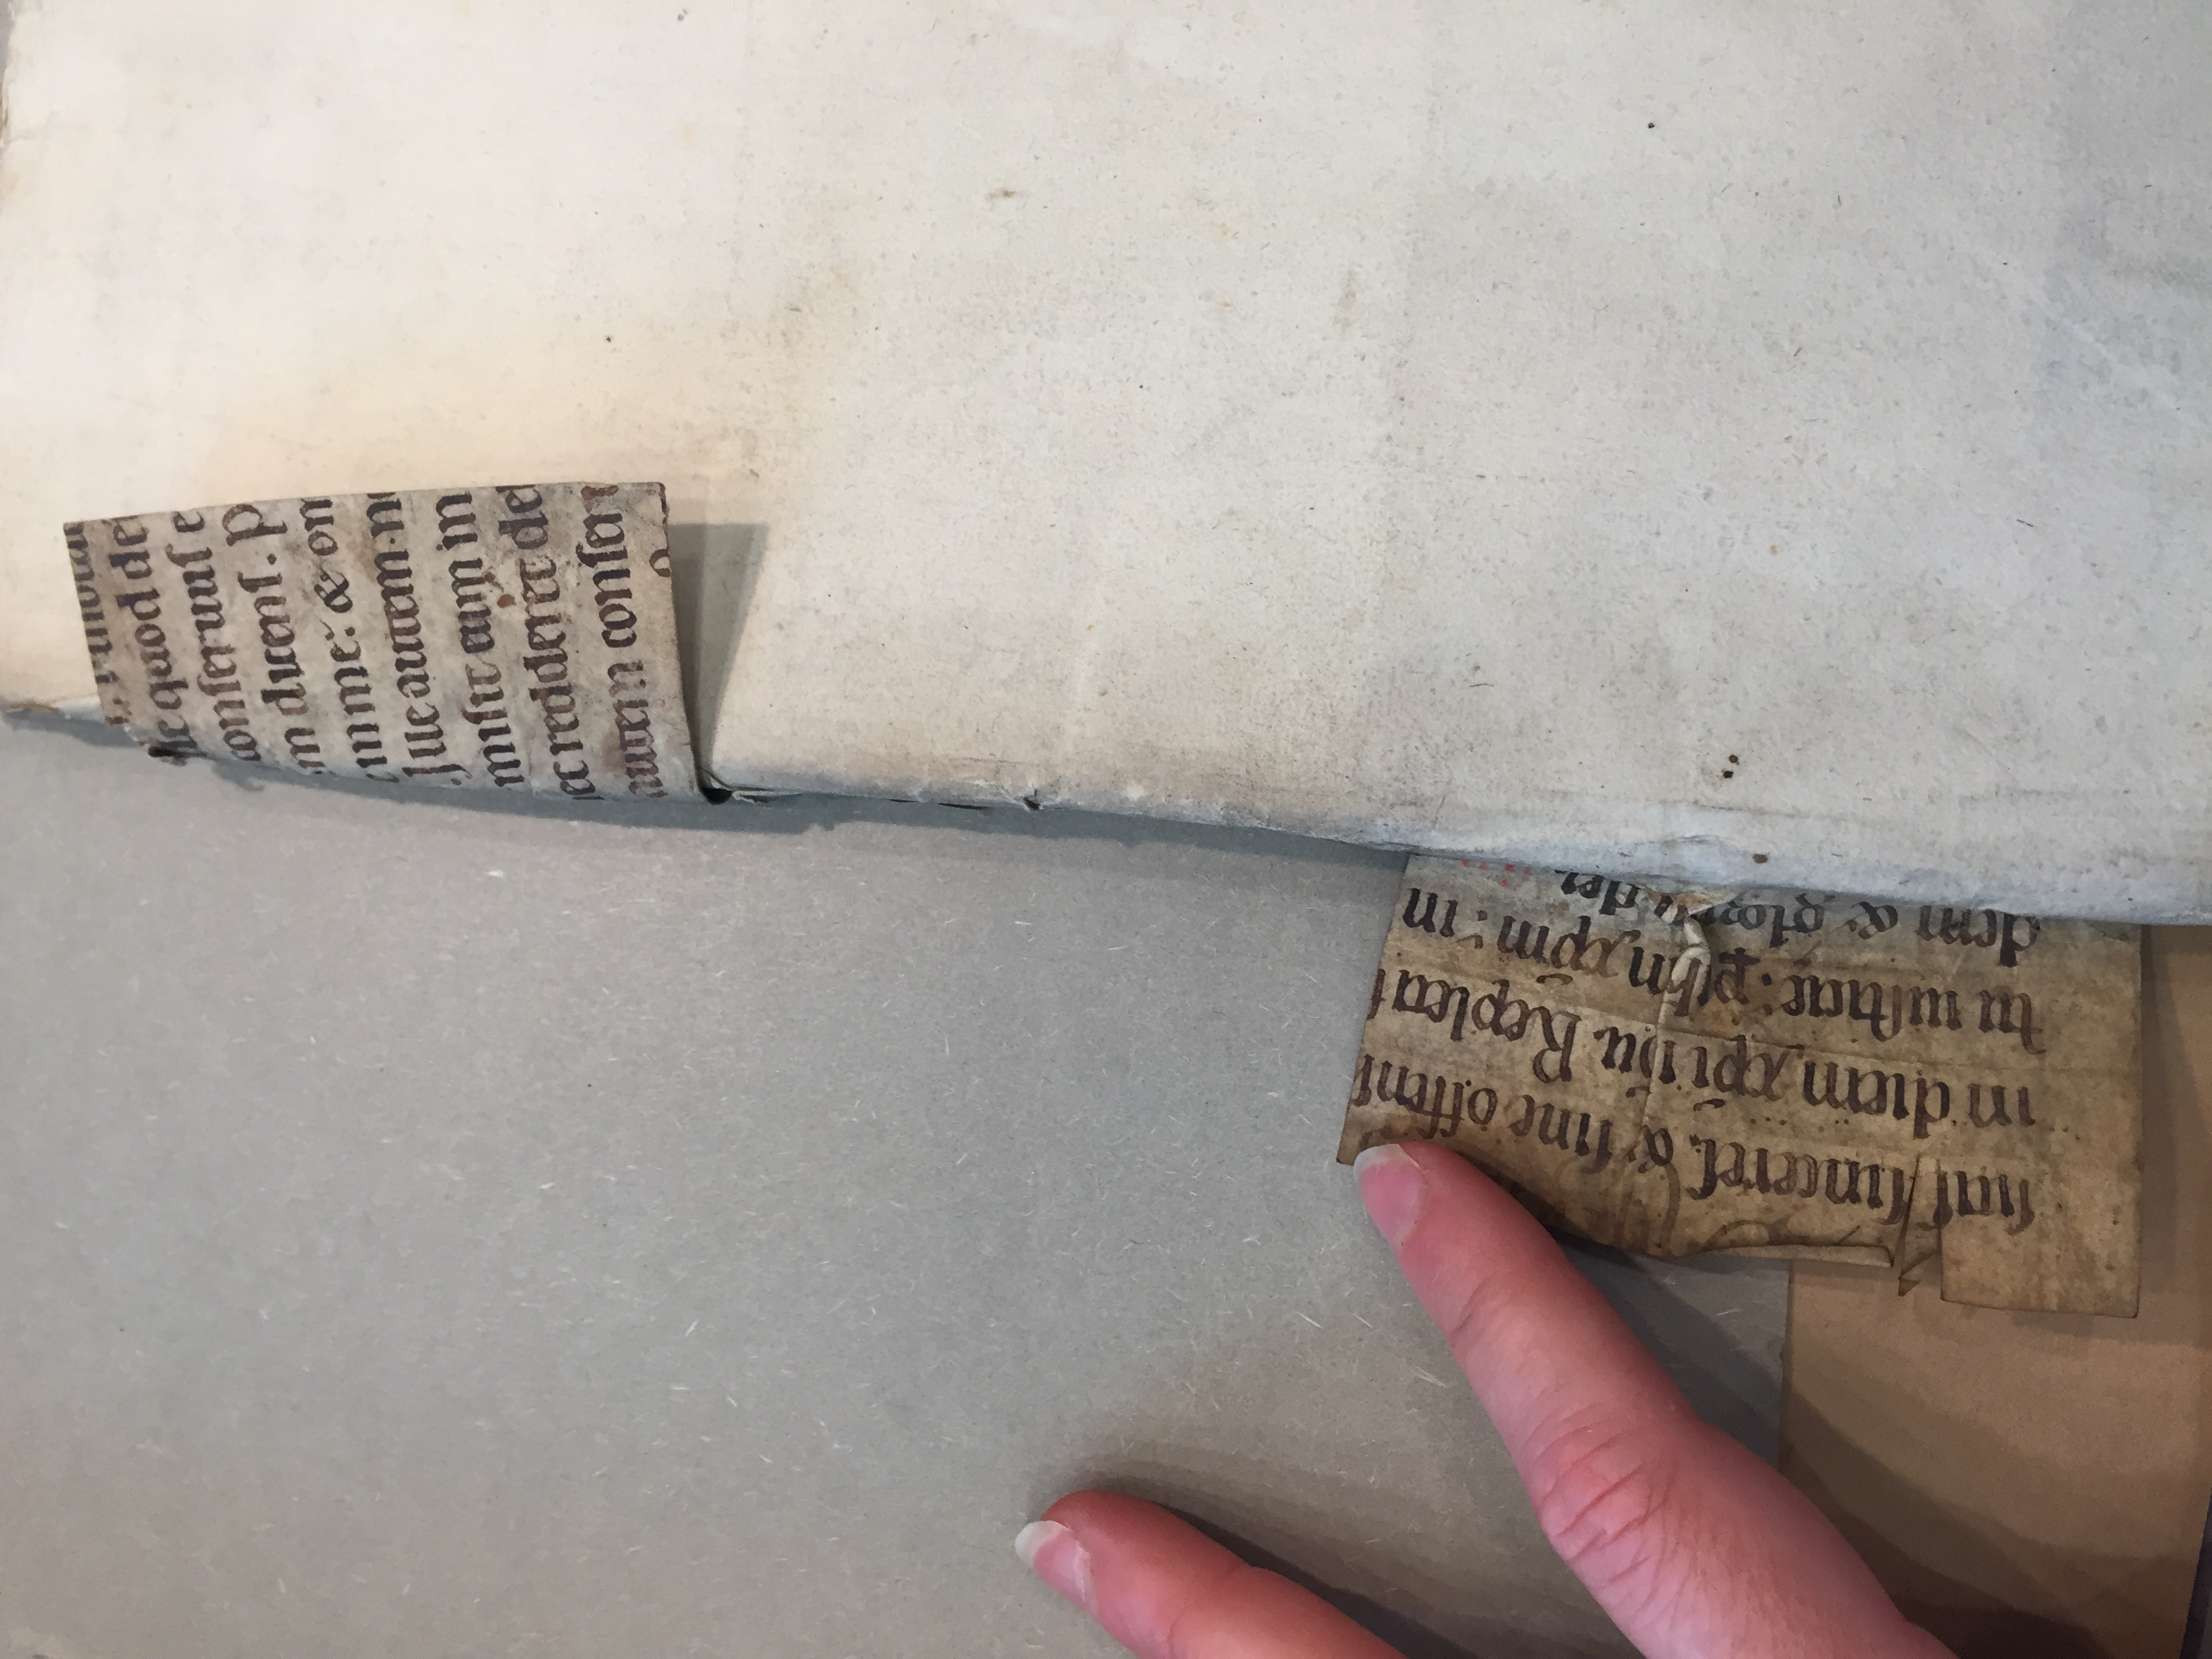 quod de
conſeruuſ e
m dicenſ. P
in me: & om
Ille autem n
miſit eum in
et redderet de
autem conſeru
ſitiſ ſincereſ & ſine offenſ
in diem xp̄i ih̄u Repleti
tu iuſtitiae: p ih̄m xp̄m: in
dem & gloriā dei